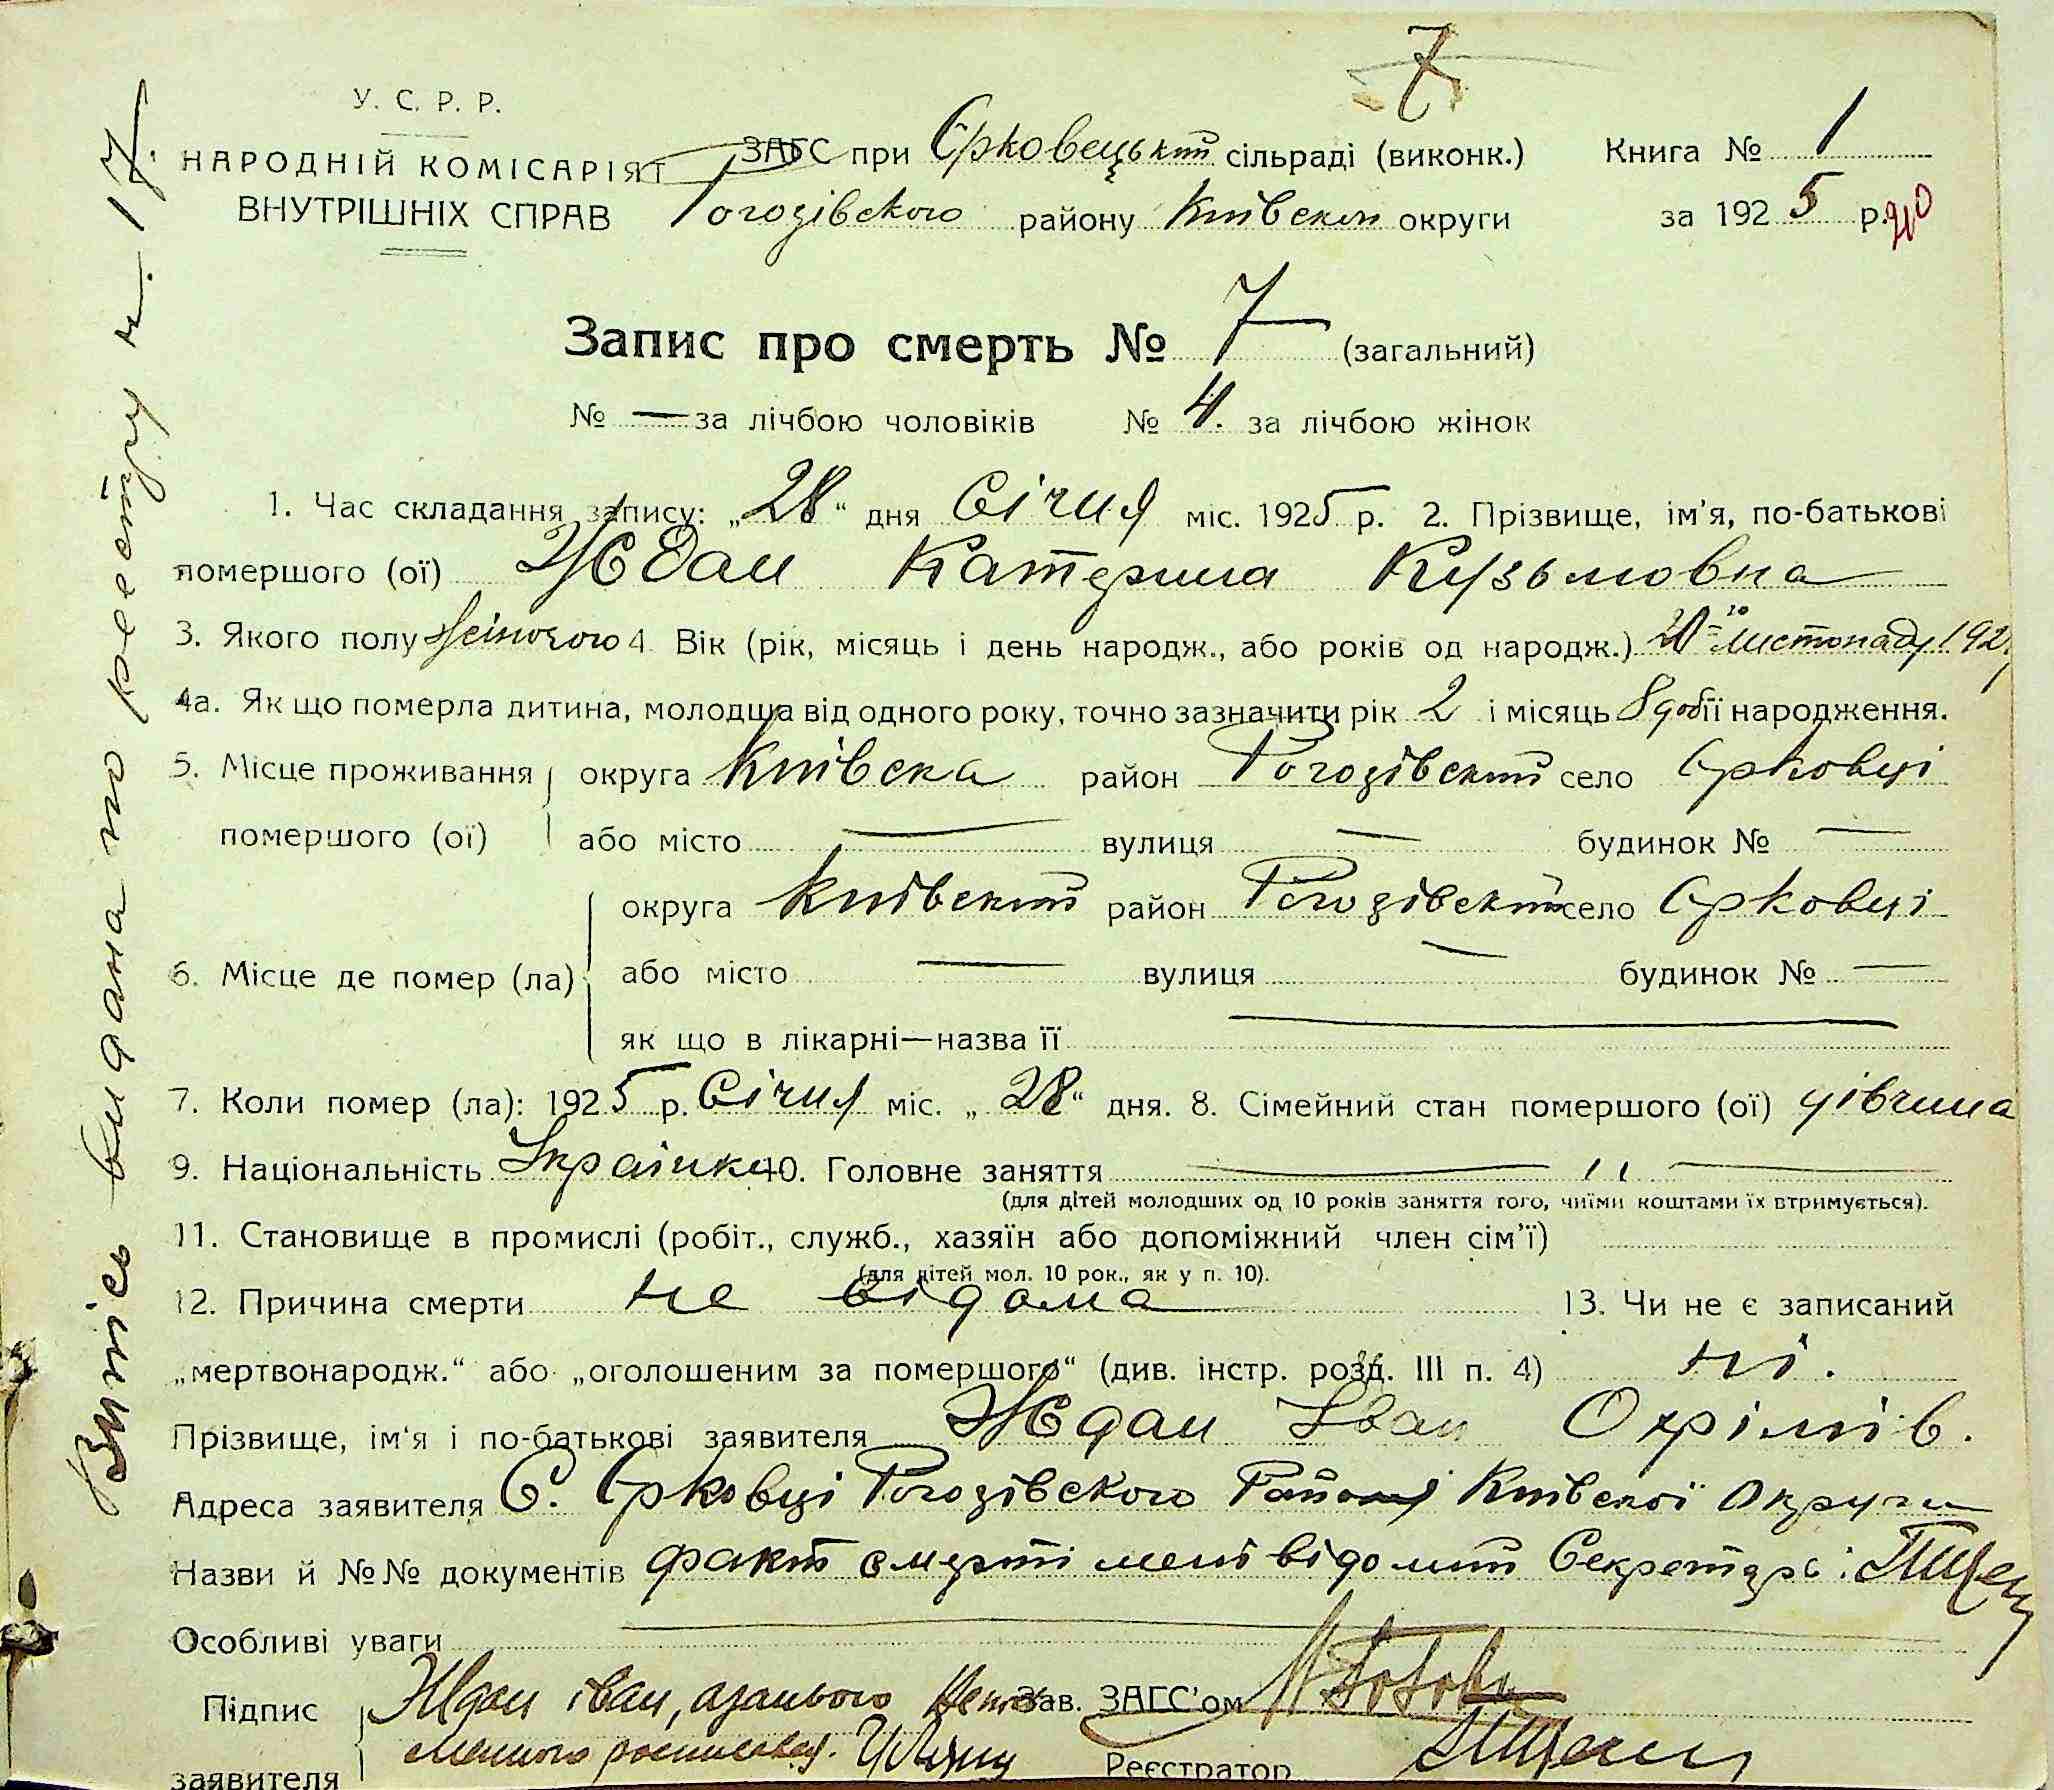 7
У. С. Р. Р.
НАРОДНІЙ КОМІСАРІЯТ
ВНУТРІШНІХ СПРАВ
ЗАГС при Єрковецький сільраді (виконк.)
Рогозівского району Київской округи
Книга № 1
за 1925 р.
Запис про смерть № 7 (загальний)
№ — за лічбою чоловіків № 4. за лічбою жінок
1. Час складання запису: „28“ дня Січня міс. 1925 р. 2. Прізвище, ім'я, по-батькові
помершого (ої) Ждан Катерина Кузьмовна
3. Якого полу жіночого 4. Вік (рік, місяць і день народж., або років од народж.) 20 листопаду 192
4а. Як що померла дитина, молодша від одного року, точно зазначити рік 2 і місяць 8 добії народження.
5. Місце проживання помершого (ої) округа Київска район Рогозівский село Єрковці
або місто — вулиця — будинок № —
6. Місце де помер (ла) округа Київский район Рогозівский село Єрковці
або місто — вулиця — будинок № —
як що в лікарні—назва її —
7. Коли помер (ла): 1925 р. Січня міс. „28“ дня. 8. Сімейний стан помершого (ої) дівчина
9. Національність Українка 10. Головне заняття — „ —
(для дітей молодших од 10 років заняття того, чиїми коштами їх втримується).
11. Становище в промислі (робіт., служб., хазяїн або допоміжний член сім'ї)
(для дітей мол. 10 рок., як у п. 10).
12. Причина смерти не відома 13. Чи не є записаний
„мертвонародж.“ або „оголошеним за помершого“ (див. інстр. розд. III п. 4) ні.
Прізвище, ім'я і по-батькові заявителя Ждан Іван Охрімів.
Адреса заявителя С. Єрковці Рогозівского Району Київскої Округи
Назви й №№ документів факт смерті мені відомий Секретарь:
Особливі уваги —
Підпис заявителя Ждан Іван, а за нього
росписався.
Зав. ЗАГС'ом
Реєстратор
Випісь видана по реєстру н. 17.